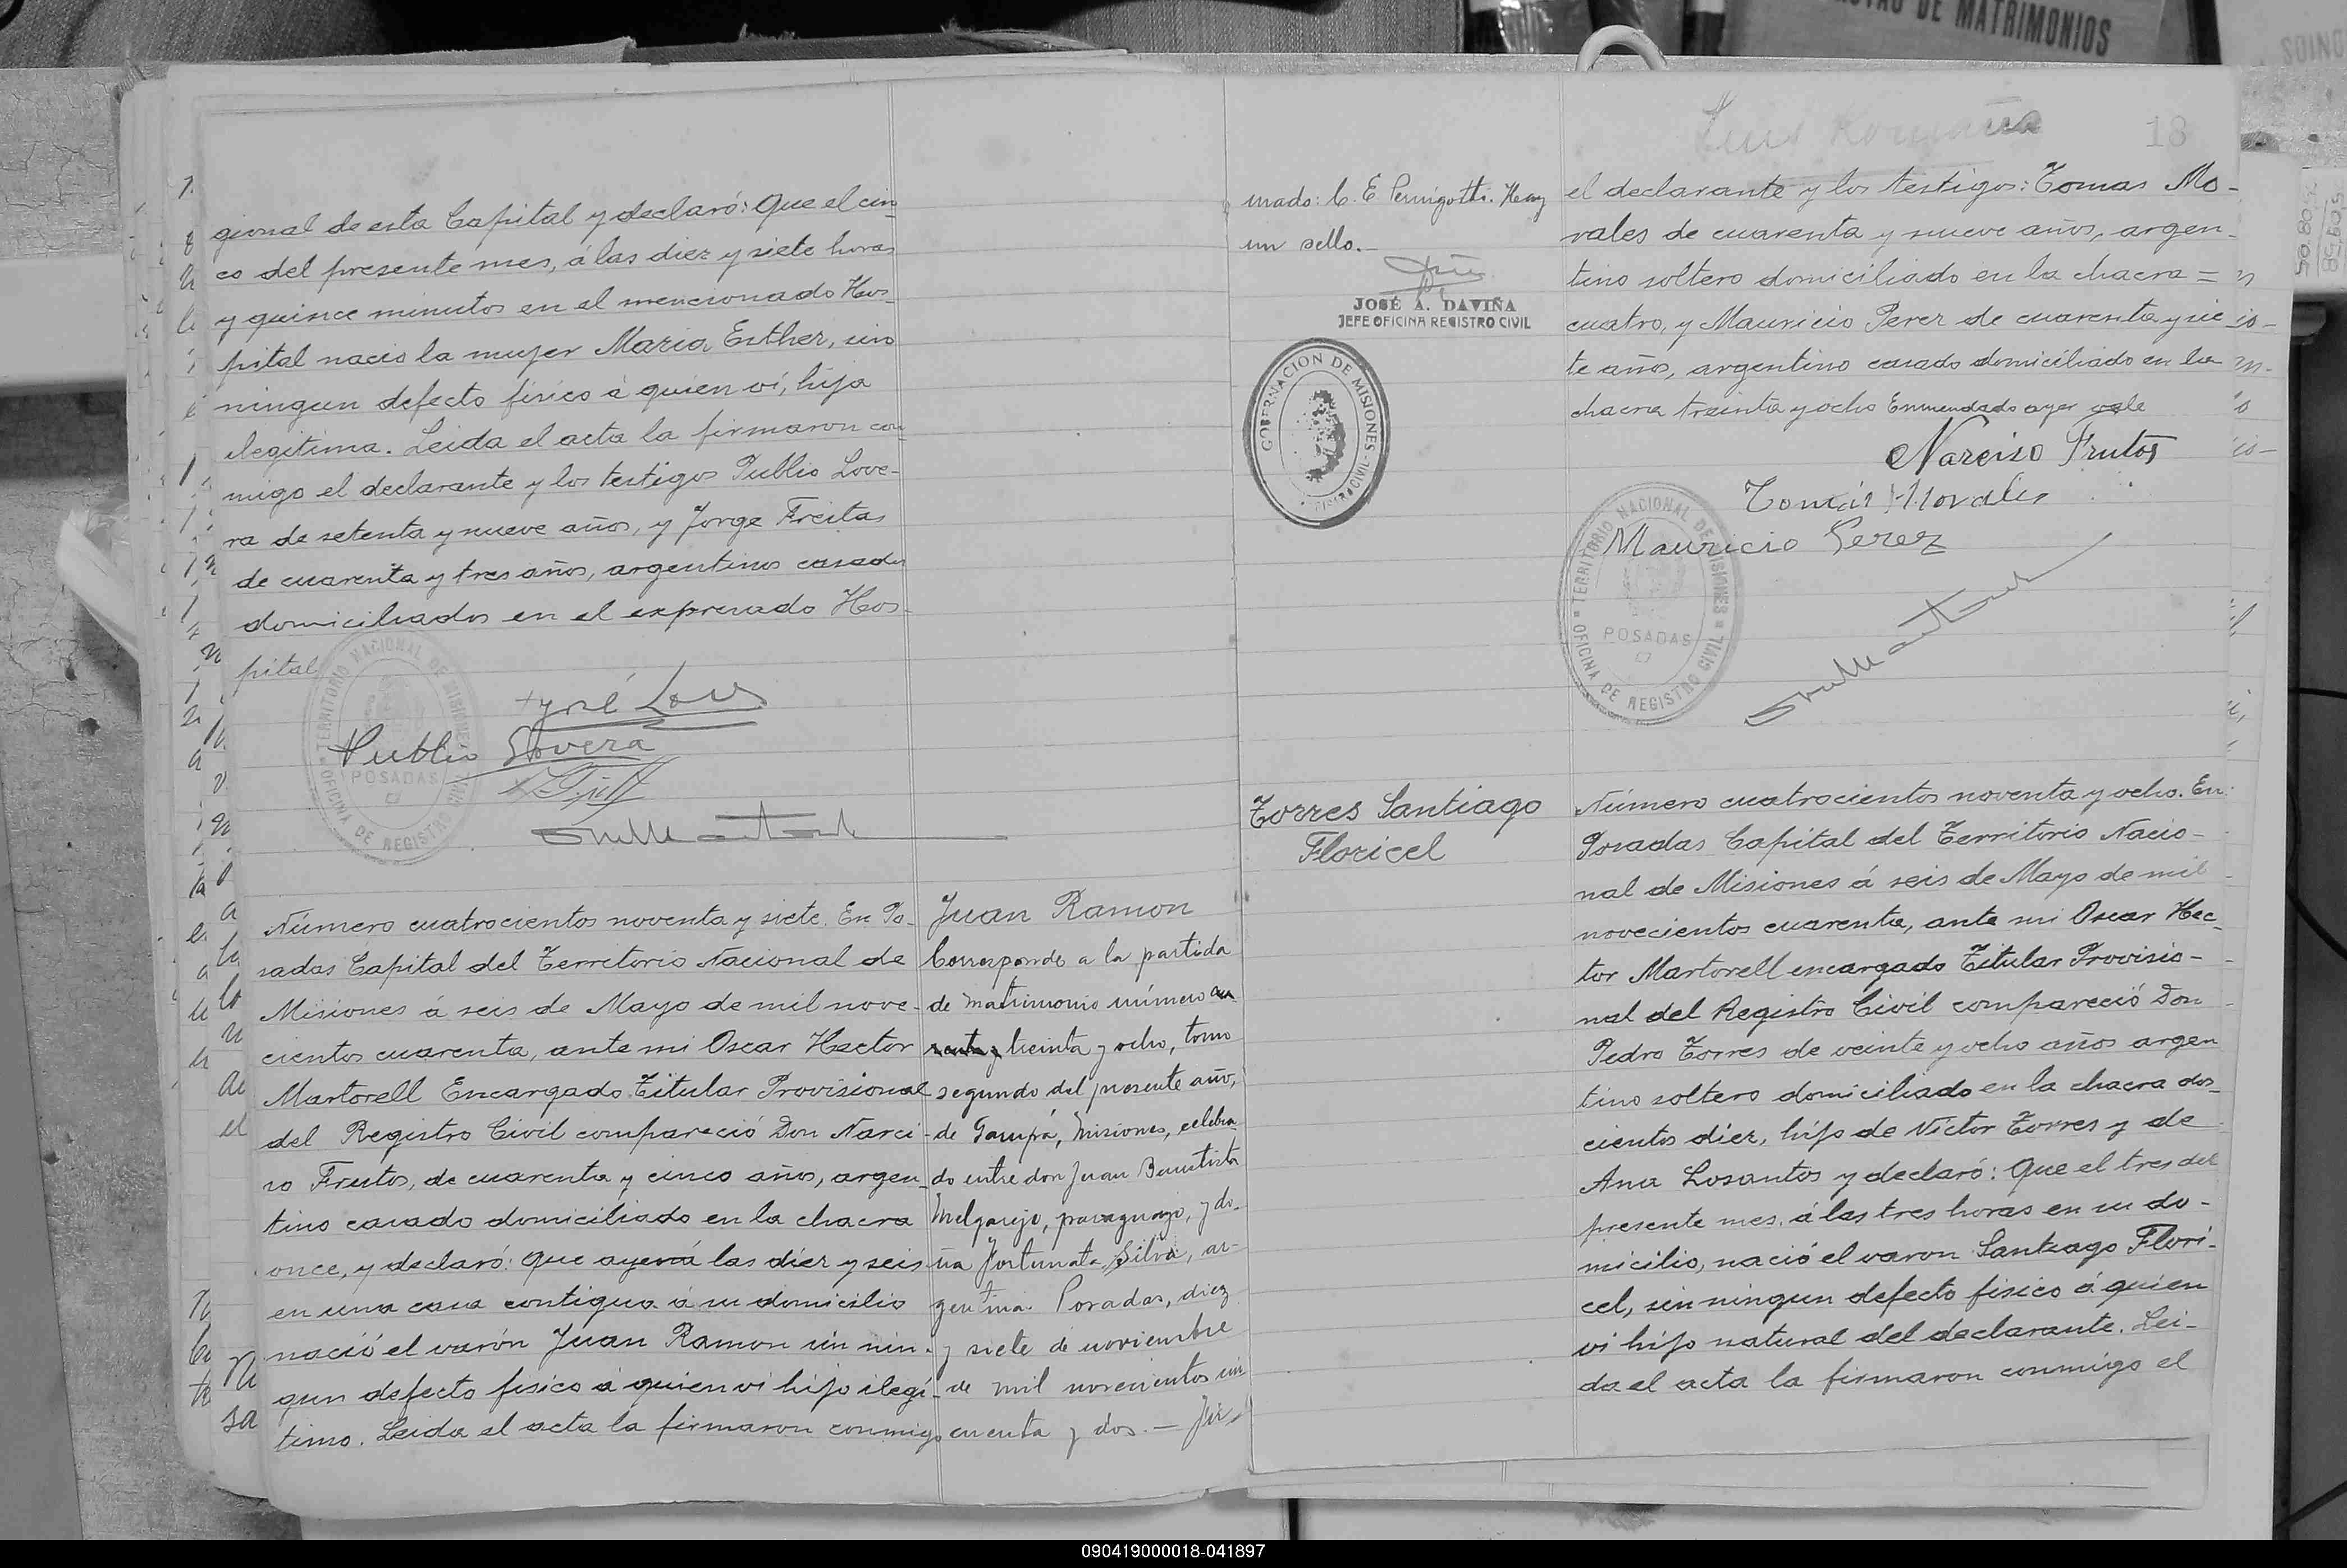 TRO DE MATRIMONIOS
gional de esta Capital y declaró: Que el cin
co del presente mes, á las diez y siete horas
y quince minutos en el mencionado Hos-
pital nació la mujer Maria Esther, sin
ningun defecto fisico á quien ví, hija
legitima. Leida el acta la firmaron con-
migo el declarante y los testigos Publio Love-
ra de setenta y nueve años, y Jorge Freitas
de cuarenta y tres años, argentinos casados
domiciliados en el expresado Hos-
pital
TERRITORIO NACIONAL DE MISIONES
POSADAS
OFICINA DE REGISTRO CIVIL
José
Publio Lovera
Número cuatrocientos noventa y siete. En Po-
sadas Capital del Territorio Nacional de
Misiones á seis de Mayo de mil nove-
cientos cuarenta, ante mi Oscar Hector
Martorell Encargado Titular Provisional
del Registro Civil compareció Don Narci-
so Frutos, de cuarenta y cinco años, argen-
tino casado domiciliado en la chacra
once, y declaró: Que ayer á las diez y seis
en una casa contigua á su domicilio
nació el varón Juan Ramon sin nin-
gun defecto fisico á quien ví hijo ilegi-
timo. Leida el acta la firmaron conmigo
Juan Ramon
Corresponde a la partida
de matrimonio número
treinta y ocho, tomo
segundo del presente año,
de Garupá, Misiones, celebra
do entre don Juan Bautista
Melgarejo, paraguayo, y do-
ña Fortunata Silva, ar-
gentina. Posadas, diez
y siete de noviembre
de mil novecientos cin
cuenta y dos. — Fir
mado: C. E. Pernigotti. Hay
un sello.-
JOSÉ A. DAVIÑA
JEFE OFICINA REGISTRO CIVIL
GOBERNACION DE MISIONES
REGISTRO CIVIL
Luis Romaña
18
el declarante y los testigos: Tomas Mo-
rales de cuarenta y nueve años, argen-
tino soltero domiciliado en la chacra =
cuatro, y Mauricio Perez de cuarenta y sie
te años, argentino casado domiciliado en la
chacra treinta y ocho Enmendado ayer vale
Narciso Frutos
Tomás Morales
Mauricio Perez
TERRITORIO NACIONAL DE MISIONES
POSADAS
OFICINA DE REGISTRO CIVIL
Torres Santiago
Floricel
Número cuatrocientos noventa y ocho. En
Posadas Capital del Territorio Nacio-
nal de Misiones á seis de Mayo de mil
novecientos cuarenta, ante mi Oscar Hec-
tor Martorell encargado Titular Provisio-
nal del Registro Civil compareció Don
Pedro Torres de veinte y ocho años argen
tino soltero domiciliado en la chacra dos-
cientos diez, hijo de Victor Torres y de
Ana Losantos y declaró: Que el tres del
presente mes, á las tres horas en su do-
micilio, nació el varon Santiago Flori-
cel, sin ningun defecto fisico á quien
ví hijo natural del declarante. Lei-
da el acta la firmaron conmigo el
090419000018-041897